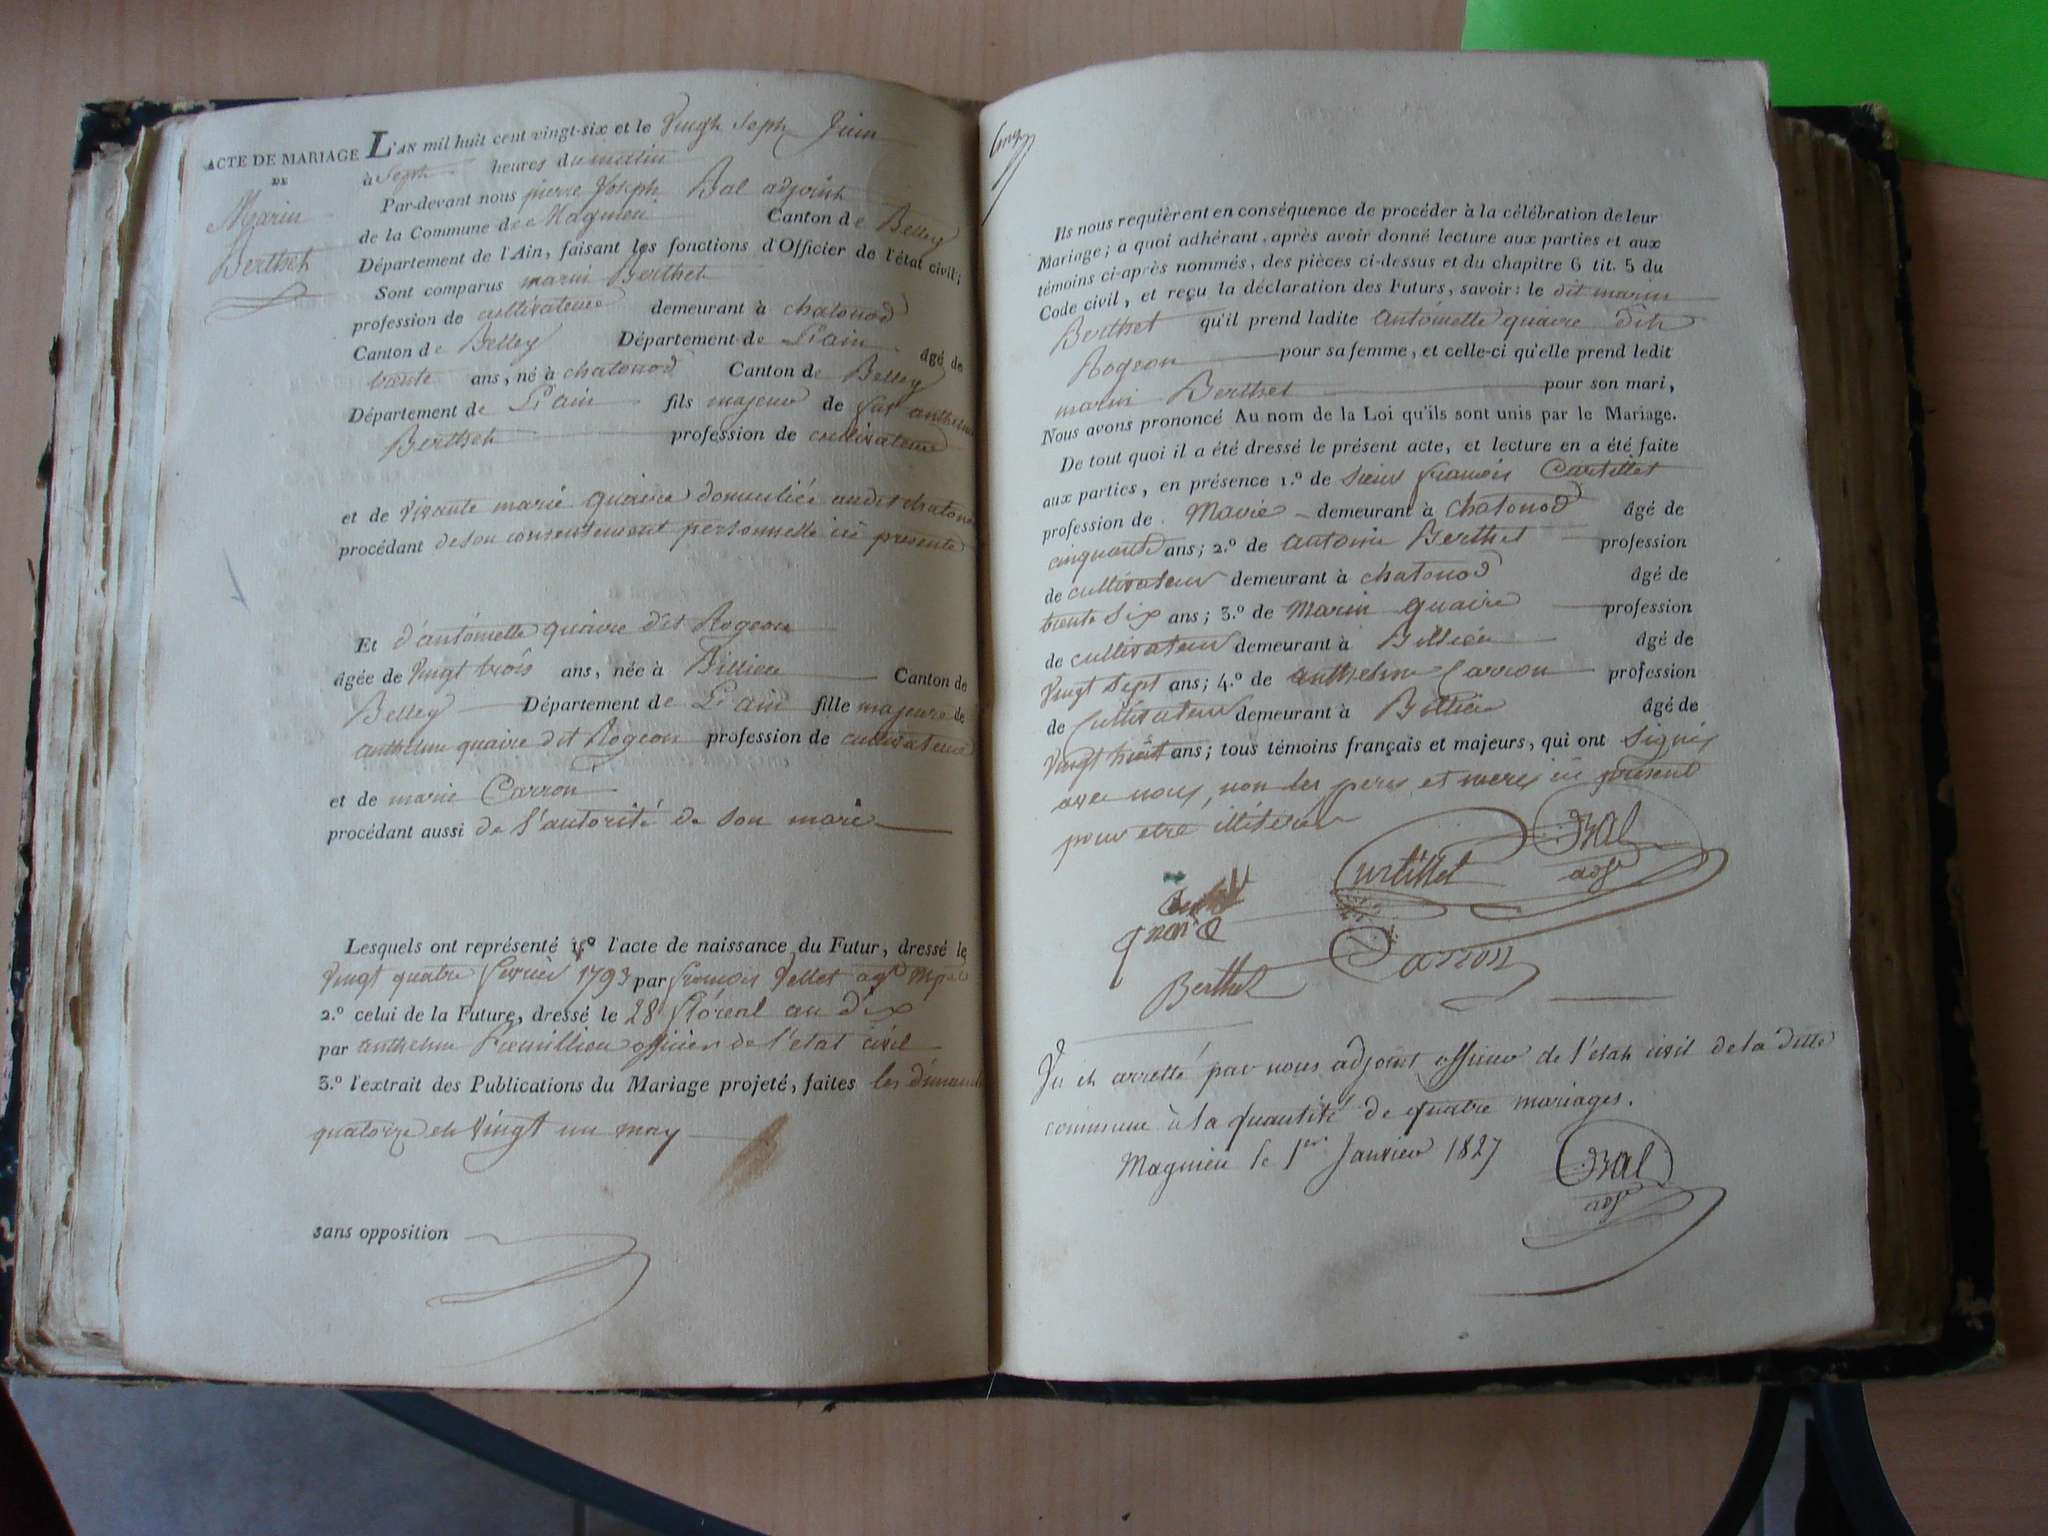 ACTE DE MARIAGE
DE
Marin
Berthet
L'AN mil huit cent vingt-six et le Vingh Seph Juin
à Seph heures du matin
Par-devant nous pierre Joseph Bal adjoinh
de la Commune de Magnieu Canton de Belley
Département de l'Ain, faisant les fonctions d'Officier de l'état civil;
Sont comparus marin Berthet
profession de cultivateur demeurant à chatonod
Canton de Belley Département de L'ain âgé de
trente ans, né à chatonod Canton de Belley
Département de L'ain fils majeur de feu anthelme
Berthet profession de cultivateur
et de Vivante marie quaire domiciliée audit chatonod
procédant de son consentement personnelle ici presente
Et d'antoinette quaire dit Rogeon
âgée de Vingt trois ans, née à Billieu Canton de
Belley Département de L'ain fille majeure de
anthelme quaire dit Rogeon profession de cultivateur
et de marie Carron
procédant aussi de l'autorité de son mari
Lesquels ont représenté 1º l'acte de naissance du Futur, dressé le
Vingt quatre fevrier 1793 par françois Vellet
2.º celui de la Future, dressé le 28 floréal an dix
par anthelme officier de l'état civil
3.º l'extrait des Publications du Mariage projeté, faites les dimanche
quatorze eh Vingt un may
sans opposition
Ils nous requièrent en conséquence de procéder à la célébration de leur
Mariage; a quoi adhérant, après avoir donné lecture aux parties et aux
témoins ci-après nommés, des pièces ci-dessus et du chapitre 6 tit. 5 du
Code civil, et reçu la déclaration des Futurs, savoir: le dit marin
Berthet qu'il prend ladite antoinette quaire dit
Rogeon pour sa femme, et celle-ci qu'elle prend ledit
marin Berthet pour son mari,
Nous avons prononcé Au nom de la Loi qu'ils sont unis par le Mariage.
De tout quoi il a été dressé le présent acte, et lecture en a été faite
aux parties, en présence 1.º de sieur françois Curtillet
profession de Mairie demeurant à chatonod âgé de
cinquante ans; 2.º de antoine Berthet profession
de cultivateur demeurant à chatonod âgé de
trente six ans; 3.º de Marin quaire profession
de cultivateur demeurant à Billieu âgé de
Vingt sept ans; 4.º de anthelme Carron profession
de Cultivateur demeurant à Billieu âgé de
Vingt huit ans; tous témoins français et majeurs, qui ont signés
avec nous, non les peres et meres ici présent
pour etre illitérer
Bal
adjt
Curtillet
Carron
Berthet
eh arretté par nous adjoint officier de l'étah civil de la ditte
commune à la quantité de quatre mariages.
Magnieu le 1er Janvier 1827
Bal
adjt